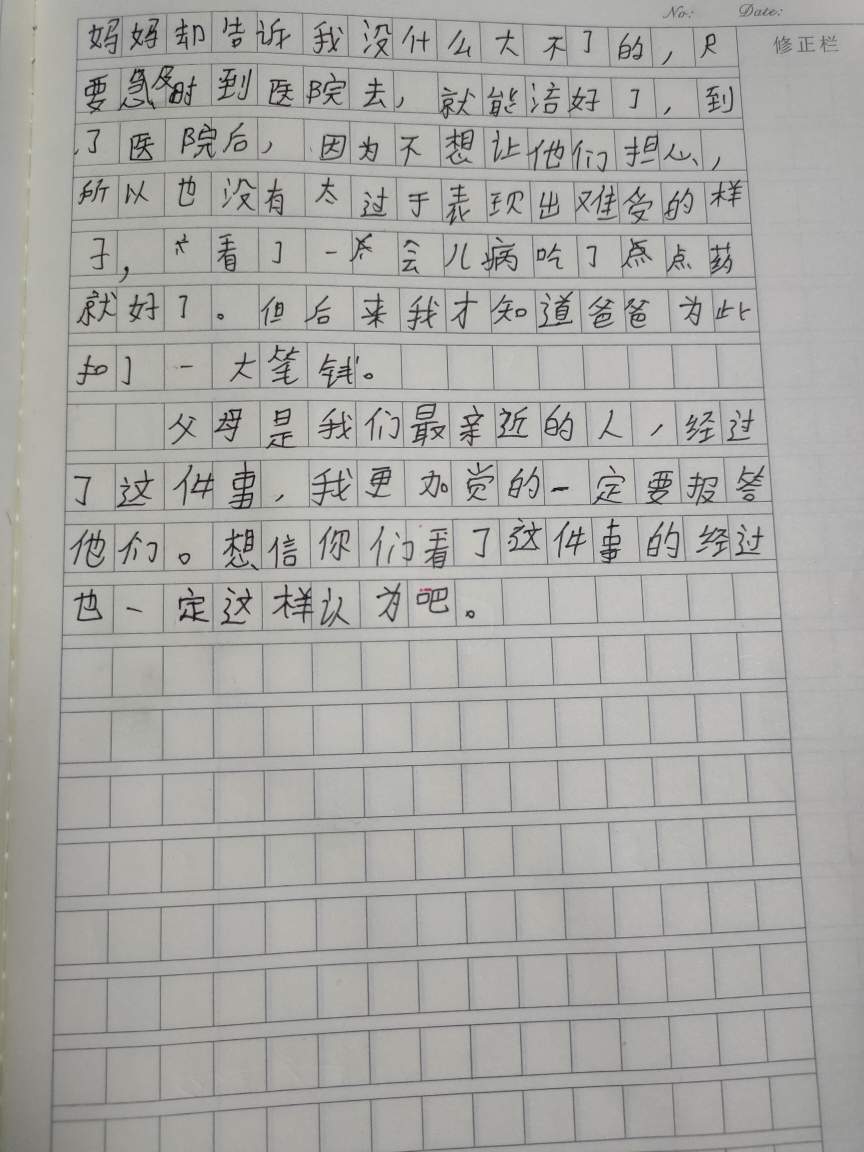 No: Date:
修正栏
妈妈却告诉我没什么大不了的，只
要急及时到医院去，就能洁好了，到
了医院后，因为不想让他们担心，
所以也没有太过于表现出难受的样
子，看了一点会儿病吃了点点药
就好了。但后来我才知道爸爸为此
扣了一大笔钱。
父母是我们最亲近的人，经过
了这件事，我更加觉的一定要报答
他们。想信你们看了这件事的经过
也一定这样认为吧。